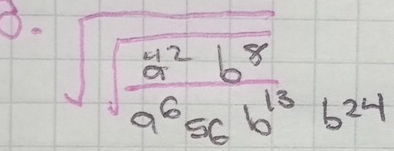 8.
a² b⁸
a⁶ 56 b¹³ b²⁴